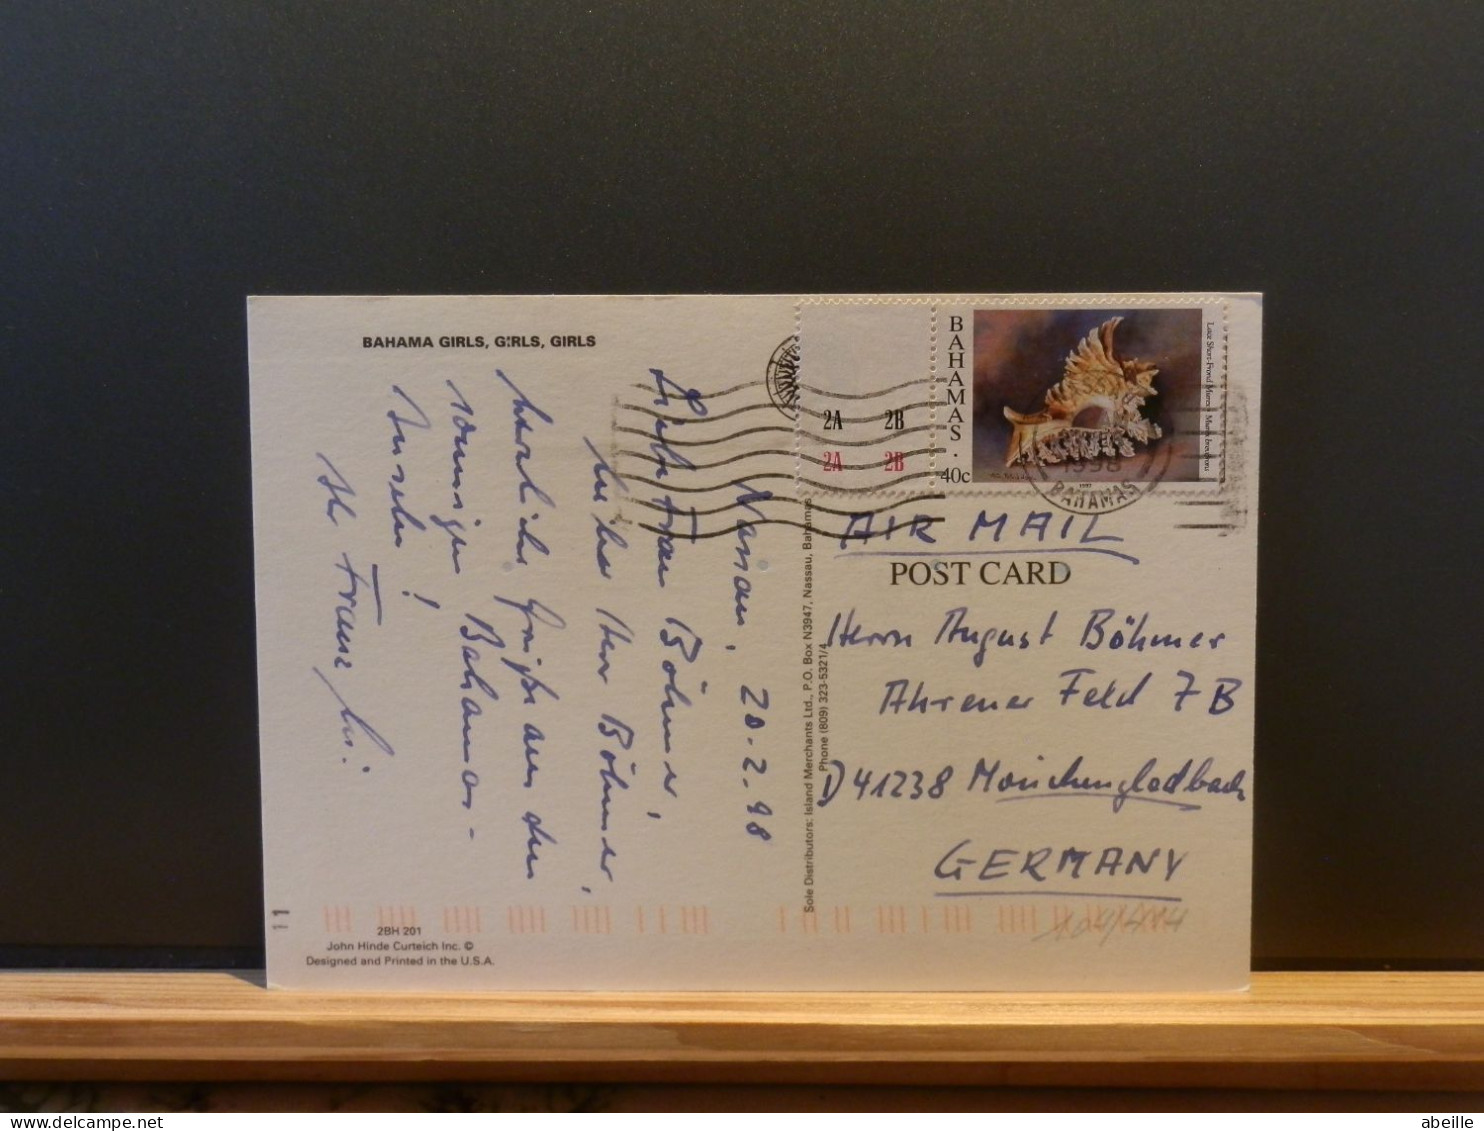 BAHAMA GIRLS, GIRLS, GIRLS
Nassau, 20.2.98
Liebe Frau Böhmer,
lieber Herr Böhmer,
herzliche Grüße aus den
sonnigen Bahamas-
Inseln!
Ihr Franz
2BH 201
John Hinde Curteich Inc. ©
Designed and Printed in the U.S.A.
11
Sole Distributors: Island Merchants Ltd., P.O. Box N3947, Nassau, Bahamas
Phone (809) 323-5321/4
2A 2B
2A 2B
BAHAMAS · 40c
Lace Short-Frond Murex
1997
1998
BAHAMAS
AIR MAIL
POST CARD
Herrn August Böhmer
Ahrener Feld 7B
D 41238 Mönchengladbach
GERMANY
abeille